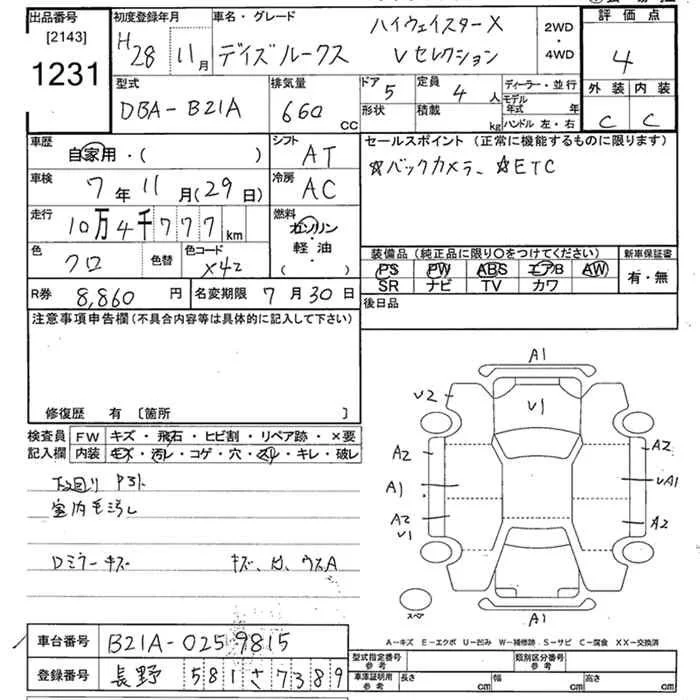 出品番号 初度登録年月 車名・グレード ハイウェイスターX 2WD・4WD 評価点
[2143] H28 11月 デイズルークス Vセレクション 4
1231 型式 排気量 ドア 定員 ディーラー・並行 外装 内装
DBA-B21A 660 CC 5 4人 モデル年式 年 C C
形状 積載 kg ハンドル 左・右
車歴 自家用・( ) シフト AT セールスポイント(正常に機能するものに限ります)
車検 7年11月(29日) 冷房 AC ☆バックカメラ、☆ETC
走行 10万4千777km 燃料 ガソリン・軽油( )
色 クロ 色替 色コード X42 装備品(純正品に限り〇をつけてください) 新車保証書
PS PW ABS エアB AW 有・無
SR ナビ TV カワ
R券 8,860円 名変期限 7月30日 後日品
注意事項申告欄(不具合内容等は具体的に記入して下さい)
修復歴 有 [箇所 ]
検査員記入欄 FW キズ・飛石・ヒビ割・リペア跡・×要
内装 キズ・汚レ・コゲ・穴・スレ・キレ・破レ
下回り
室内毛汚レ
Dミラーキズ キズ、凹、ウスA
A1
V2 V1
A2 A2
A1 UA1
A2 A2
V1
A1
スペア
A-キズ E-エクボ U-凹み W-補修跡 S-サビ C-腐食 XX-交換済
車台番号 B21A-0259815 型式指定番号 参考 類別区分番号 参考
登録番号 長野 581 さ 7389 車庫証明用 参考 長さ cm 幅 cm 高さ cm